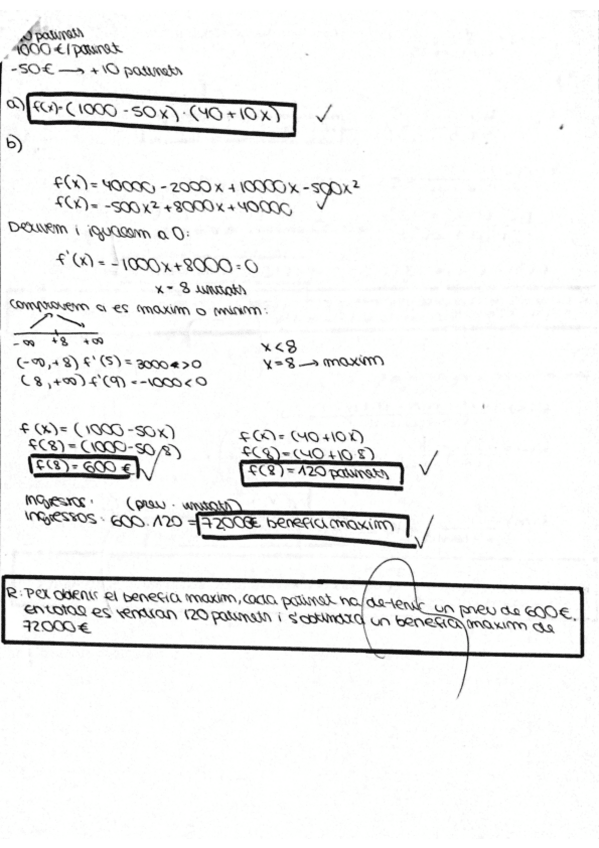 patinets
1000 €/patinet
-50€ → +10 patinets
a) f(x)=(1000-50x)·(40+10x) ✓
b)
f(x)=40000-2000x+10000x-500x²
f(x)=-500x²+8000x+40000 ✓
Derivem i igualem a 0:
f'(x)=-1000x+8000=0
x=8 unitats
comprovem si es maxim o minim:
-∞ +8 +∞
x<8
(-∞,+8) f'(5)=3000>0
x=8 → maxim
(8,+∞) f'(9)=-1000<0
f(x)=(1000-50x)
f(x)=(40+10x)
f(8)=(1000-50·8)
f(8)=(40+10·8)
f(8)=600€ ✓
f(8)=120 patinets ✓
Ingressos: (preu · unitats)
Ingressos: 600·120=72000€ benefici maxim ✓
R: Per obtenir el benefici maxim, cada patinet ha de tenir un preu de 600€.
En total es vendran 120 patinets i s'obtindrà un benefici maxim de
72000€